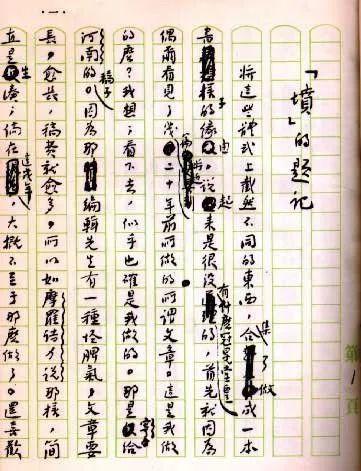 ·一·
「墳」的題記
將這些体式上截然不同的東西，集合了做成一本
書樣子的緣由，說起來是很沒有什麽冠冕堂皇的，首先就因為
偶爾看見了幾篇將近二十年前所做的所謂文章。這是我做
的麽？我想；看下去，似乎也確是我做的。那是寄給
河南的稿子。因為那編輯先生有一種怪脾氣，文章要
長，愈長，稿費就愈多。所以如摩羅詩力說那樣，簡
直是生湊；倘在這幾年，大概不至于那麽做了。還喜歡
第1頁